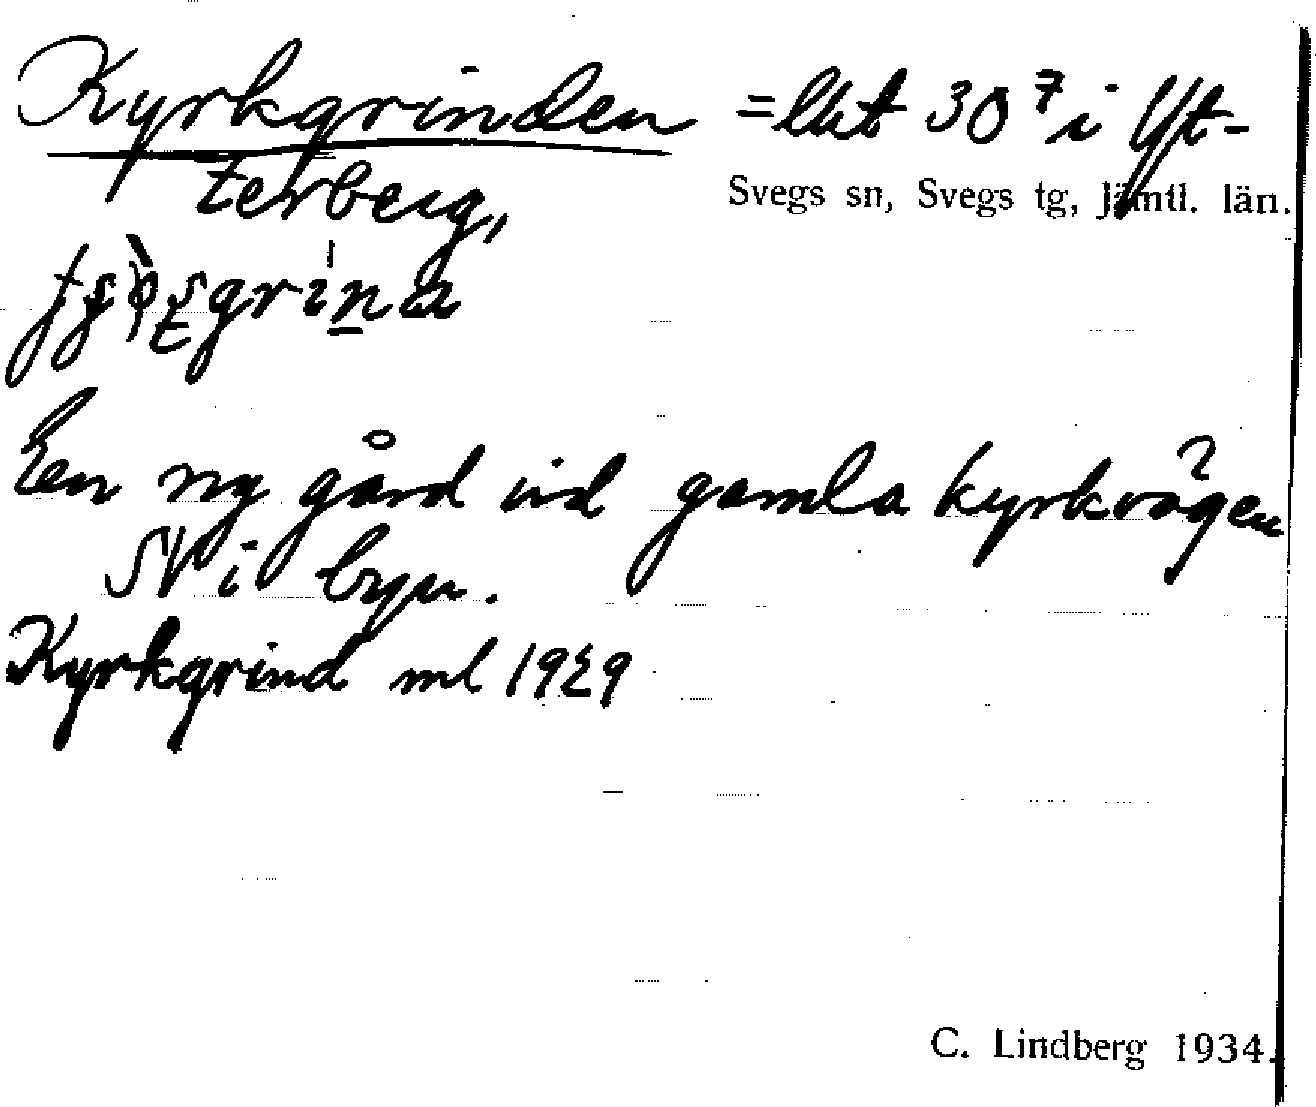 Kyrkgrinden = litt 30⁷ i Yt-
terberg,
Svegs sn, Svegs tg, Jämtl. län.
En ny gård vid gamla kyrkvägen
N i byn.
Kyrkgrind ml 1929
C. Lindberg 1934.